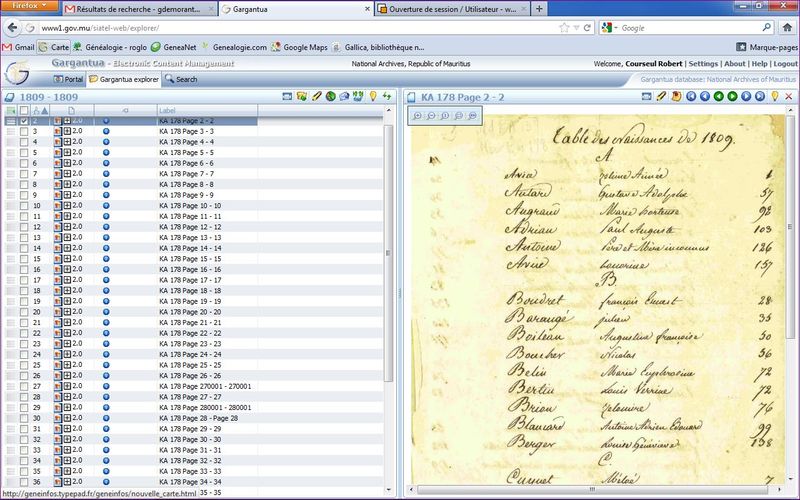 Firefox
Résultats de recherche - gdemorant...
Gargantua
Ouverture de session / Utilisateur - w...
www1.gov.mu/siatel-web/explorer/
Google
Gmail
Carte
Généalogie - roglo
GeneaNet
Genealogie.com
Google Maps
Gallica, bibliothèque n...
Marque-pages
Gargantua - Electronic Content Management
National Archives, Republic of Mauritius
Welcome, Courseul Robert | Settings | About | Help | Logout
Portal
Gargantua explorer
Search
Gargantua database: National Archives of Mauritius
1809 - 1809
Label
2 2.0 KA 178 Page 2 - 2
3 2.0 KA 178 Page 3 - 3
4 2.0 KA 178 Page 4 - 4
5 2.0 KA 178 Page 5 - 5
6 2.0 KA 178 Page 6 - 6
7 2.0 KA 178 Page 7 - 7
8 2.0 KA 178 Page 8 - 8
9 2.0 KA 178 Page 9 - 9
10 2.0 KA 178 Page 10 - 10
11 2.0 KA 178 Page 11 - 11
12 2.0 KA 178 Page 12 - 12
13 2.0 KA 178 Page 13 - 13
14 2.0 KA 178 Page 14 - 14
15 2.0 KA 178 Page 15 - 15
16 2.0 KA 178 Page 16 - 16
17 2.0 KA 178 Page 17 - 17
18 2.0 KA 178 Page 18 - 18
19 2.0 KA 178 Page 19 - 19
20 2.0 KA 178 Page 20 - 20
21 2.0 KA 178 Page 21 - 21
22 2.0 KA 178 Page 22 - 22
23 2.0 KA 178 Page 23 - 23
24 2.0 KA 178 Page 24 - 24
25 2.0 KA 178 Page 25 - 25
26 2.0 KA 178 Page 26 - 26
27 2.0 KA 178 Page 270001 - 270001
28 2.0 KA 178 Page 27 - 27
29 2.0 KA 178 Page 280001 - 280001
30 2.0 KA 178 Page 28 - Page 28
31 2.0 KA 178 Page 29 - 29
32 2.0 KA 178 Page 30 - 30
33 2.0 KA 178 Page 31 - 31
34 2.0 KA 178 Page 32 - 32
35 2.0 KA 178 Page 33 - 33
36 2.0 KA 178 Page 34 - 34
35 - 35
http://geneinfos.typepad.fr/geneinfos/nouvelle_carte.html
KA 178 Page 2 - 2
Table des naissances De 1809.
A
Avice Aimée 1
Autard Gustave Adolphe 57
Augraud Marie hortense 92
Adrian Paul Auguste 103
Antoine Père et Mère inconnus 126
Avice 157
B.
Boudret françois Ernest 28
Barangé julien 35
Boileau Augustine françoise 50
Boucher Nicolas 56
Belin Marie Euphrosine 72
Bertin Louis 72
Brion 76
Blancard Antoine Adrien Edouard 99
Berger Geneviève 138
C.
7